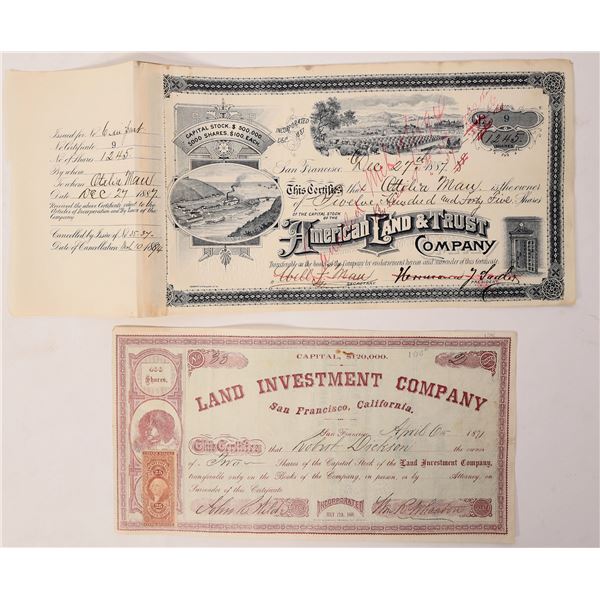 Issued for
No Certificate 9
No of Shares 1245
By whom
To whom Otelia Mau
Date DEC 27 1887
Received the above Certificate subject to the
Articles of Incorporation and By Laws of the
Company.
Cancelled by Issue of No 35.37
Date of Cancellation 10 1892
CAPITAL STOCK, $ 500,000.
5000 SHARES, $100 EACH.
INCORPORATED
DEC. 1887
9
1245
SHARES
San Francisco, Dec 27th 1887.
This Certifies that Otelia Mau is the owner
of Twelve Hundred and Forty Five Shares
OF THE CAPITAL STOCK OF THE
American Land & Trust
Company
Transferable on the books of the Company by endorsement hereon and surrender of this Certificate.
Will F. Mau
SECRETARY
PRESIDENT
No 33
CAPITAL, $120,000.
2
600
Shares.
LAND INVESTMENT COMPANY
San Francisco, California.
San Francisco, April 6th 1871
This Certifies that Robert Dickson the owner
of Two Shares of the Capital Stock of the Land Investment Company,
transferable only on the Books of the Company, in person, or by Attorney, on
Surrender of this Certificate.
INCORPORATED
25